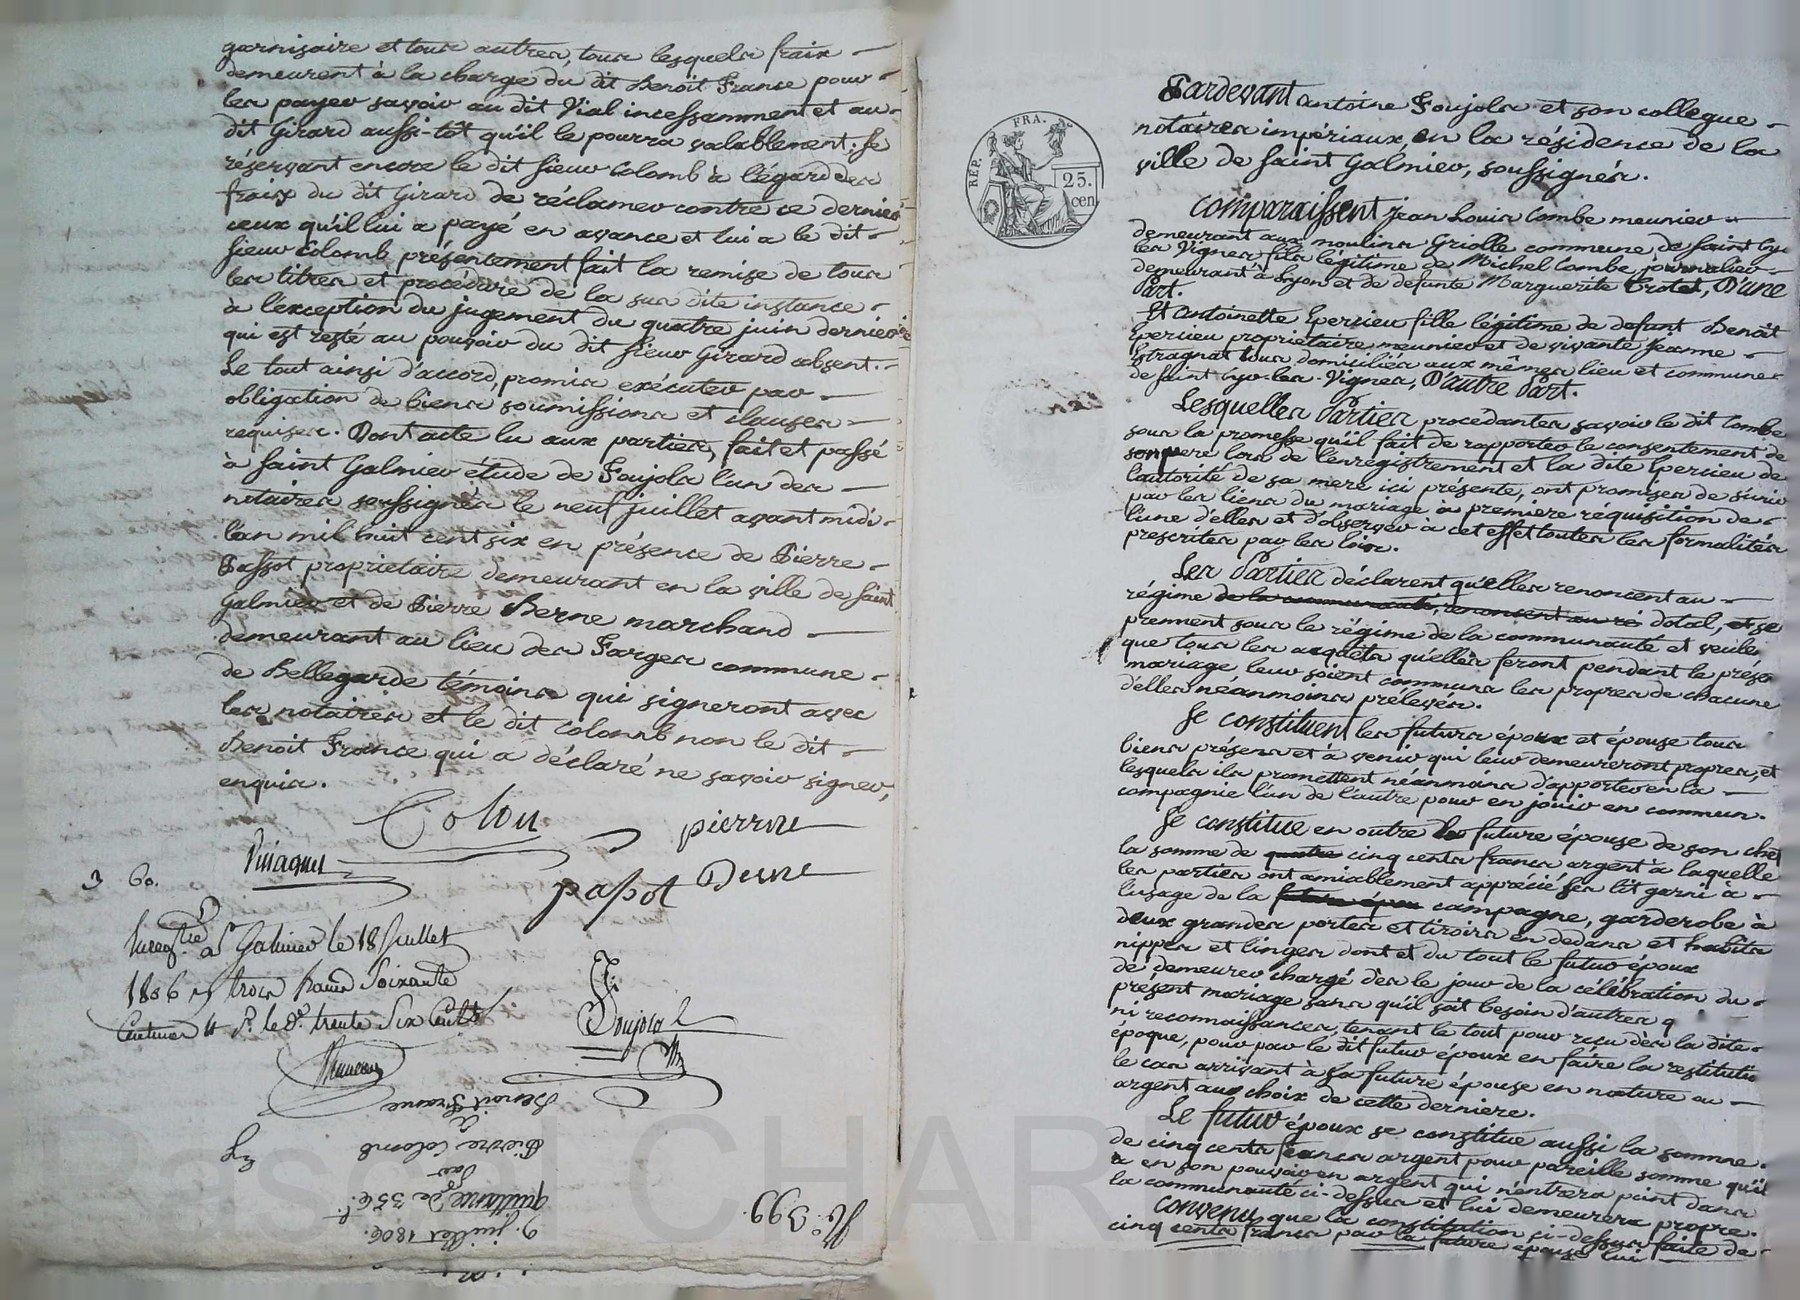 garnisaire et tous autres, tous lesquels fraix
demeurent à la charge du dit Benoit France pour
les payer savoir au dit Vial incessamment et au
dit Girard aussi-tôt qu'il le pourra valablement; se
réservant encore le dit sieur Colomb à l'égard des
fraix du dit Girard de réclamer contre ce dernier
ceux qu'il lui a payé en avance et lui a le dit
sieur Colomb présentement fait la remise de tous
les titres et procédure de la sus dite instance
à l'exception du jugement du quatre juin dernier
qui est resté au pouvoir du dit sieur Girard absent.
Le tout ainsi d'accord, promis exécuter par
obligation de biens soumissions et clauses
requises. Dont acte lu aux parties, fait et passé
à Saint Galmier étude de Foujols l'un des
notaires soussignés le neuf juillet avant midi
l'an mil huit cent six en présence de Pierre
Passot propriétaire demeurant en la ville de Saint
Galmier et de Pierre Berne marchand
demeurant au lieu des Farges commune
de Bellegarde témoins qui signeront avec
les notaires et le dit Colomb non le dit
Benoit France qui a déclaré ne savoir signer,
enquis.
Colon
pierrne
papot
3 60.
Enregtré à St Galmier le 18 Juillet
1806 trois francs Soixante
Centimes Pr. le De. trente Six Centes
Foujols
9. juillet 1806.
quittance de 356.
par
Pierre Colomb
à
Benoit France
No. 399.
REP. FRA.
25. cen
Pardevant antoine Foujols et son collegue
notaires impériaux en la résidence de la
ville de Saint Galmier, soussignés.
Comparaissent Jean Louis Combe meunier
demeurant aux moulins Griolle commune de Saint Cyr
les Vignes fils légitime de Michel Combe journalier
demeurant à Lyon et de defunte Marguerite Crotet, D'une
Part.
Et Antoinette Epercieu fille légitime de defunt Benoît
Epercieu propriétaire meunier et de vivante Jeanne
Estragnat tous domiciliés aux mêmes lieu et commune
de Saint Cyr les Vignes, D'autre Part.
Lesquelles Parties procédantes savoir le dit Combe
sous la promesse qu'il fait de rapporter le consentement de
son pere lors de l'enregistrement et la dite Epercieu de
l'autorité de sa mere ici présente, ont promises de s'unir
par les liens du mariage à premiere réquisition de
l'une d'elles et d'observer à cet effet toutes les formalités
prescrites par les lois.
Les Parties déclarent qu'elles renoncent au
régime de la communauté, renoncent au ré dotal, et se
prennent sous le régime de la communauté et veulen
que tous les acquets qu'elles feront pendant le prése
mariage leur soient communs les propres de chacune
d'elles néanmoins prélevés.
Se constituent les futurs époux et épouse tous
biens présens et à venir qui leur demeureront propres, et
lesquels ils promettent néanmoins d'apporter en la
compagnie l'un de l'autre pour en jouir en commun.
Se constitue en outre la future épouse de son chef
la somme de quatre cinq cents francs argent à laquelle
les parties ont amiablement apprécié ses lit garni à
l'usage de la future épou campagne, garderobe à
deux grandes portes et tiroirs en dedans et habits
nippes et linges dont et du tout le futur époux
de demeurer chargé dès le jour de la célébration du
présent mariage sans qu'il soit besoin d'autres q
ni reconnaissances, tenant le tout pour reçu dès la dite
époque, pour par le dit futur époux en faire la restituti
le cas arrivant à sa future épouse en nature ou
argent aux choix de cette derniere.
Le futur époux se constitue aussi la somme
de cinq cents francs argent pour pareille somme qu'il
a en son pouvoir en argent qui n'entrera point dans
la communauté ci-dessus et lui demeurera propre.
Convenu que la constitution ci-dessus faite de
cinq cents francs par la future épouse lui
Pascal CHAR